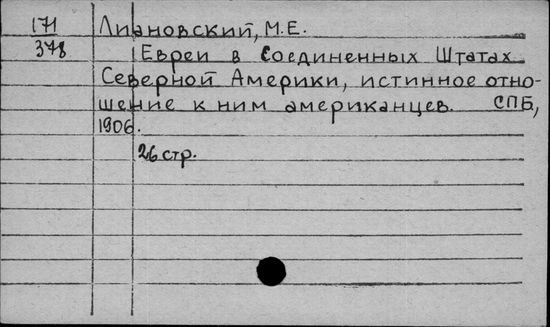 171 Лиановский, М.Е.
378 Евреи в Соединенных Штатах
Северной Америки, истинное отно-
шение к ним американцев. СПБ,
1906.
26 стр.